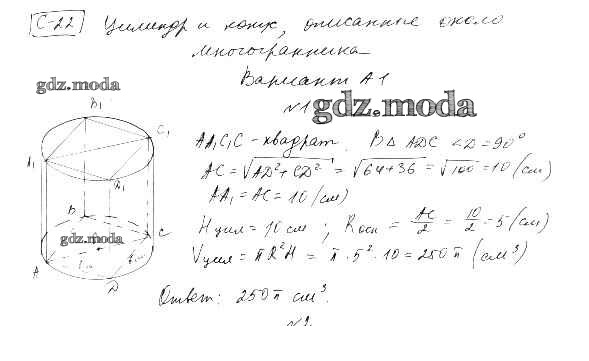 С-22 Цилиндр и конус, описанные около
многогранника
gdz.moda
Вариант А1
№1
gdz.moda
B₁
C₁
A₁
D₁
AA₁C₁C - квадрат. В Δ ADC ∠D = 90°
AC = √AD² + CD² = √64+36 = √100 = 10 (см)
AA₁ = AC = 10 (см)
B
gdz.moda
C
A
D
H цил = 10 см ; R осн = AC/2 = 10/2 = 5 (см)
V цил = πR²H = π · 5² · 10 = 250 π (см³)
Ответ: 250 π см³.
№2.